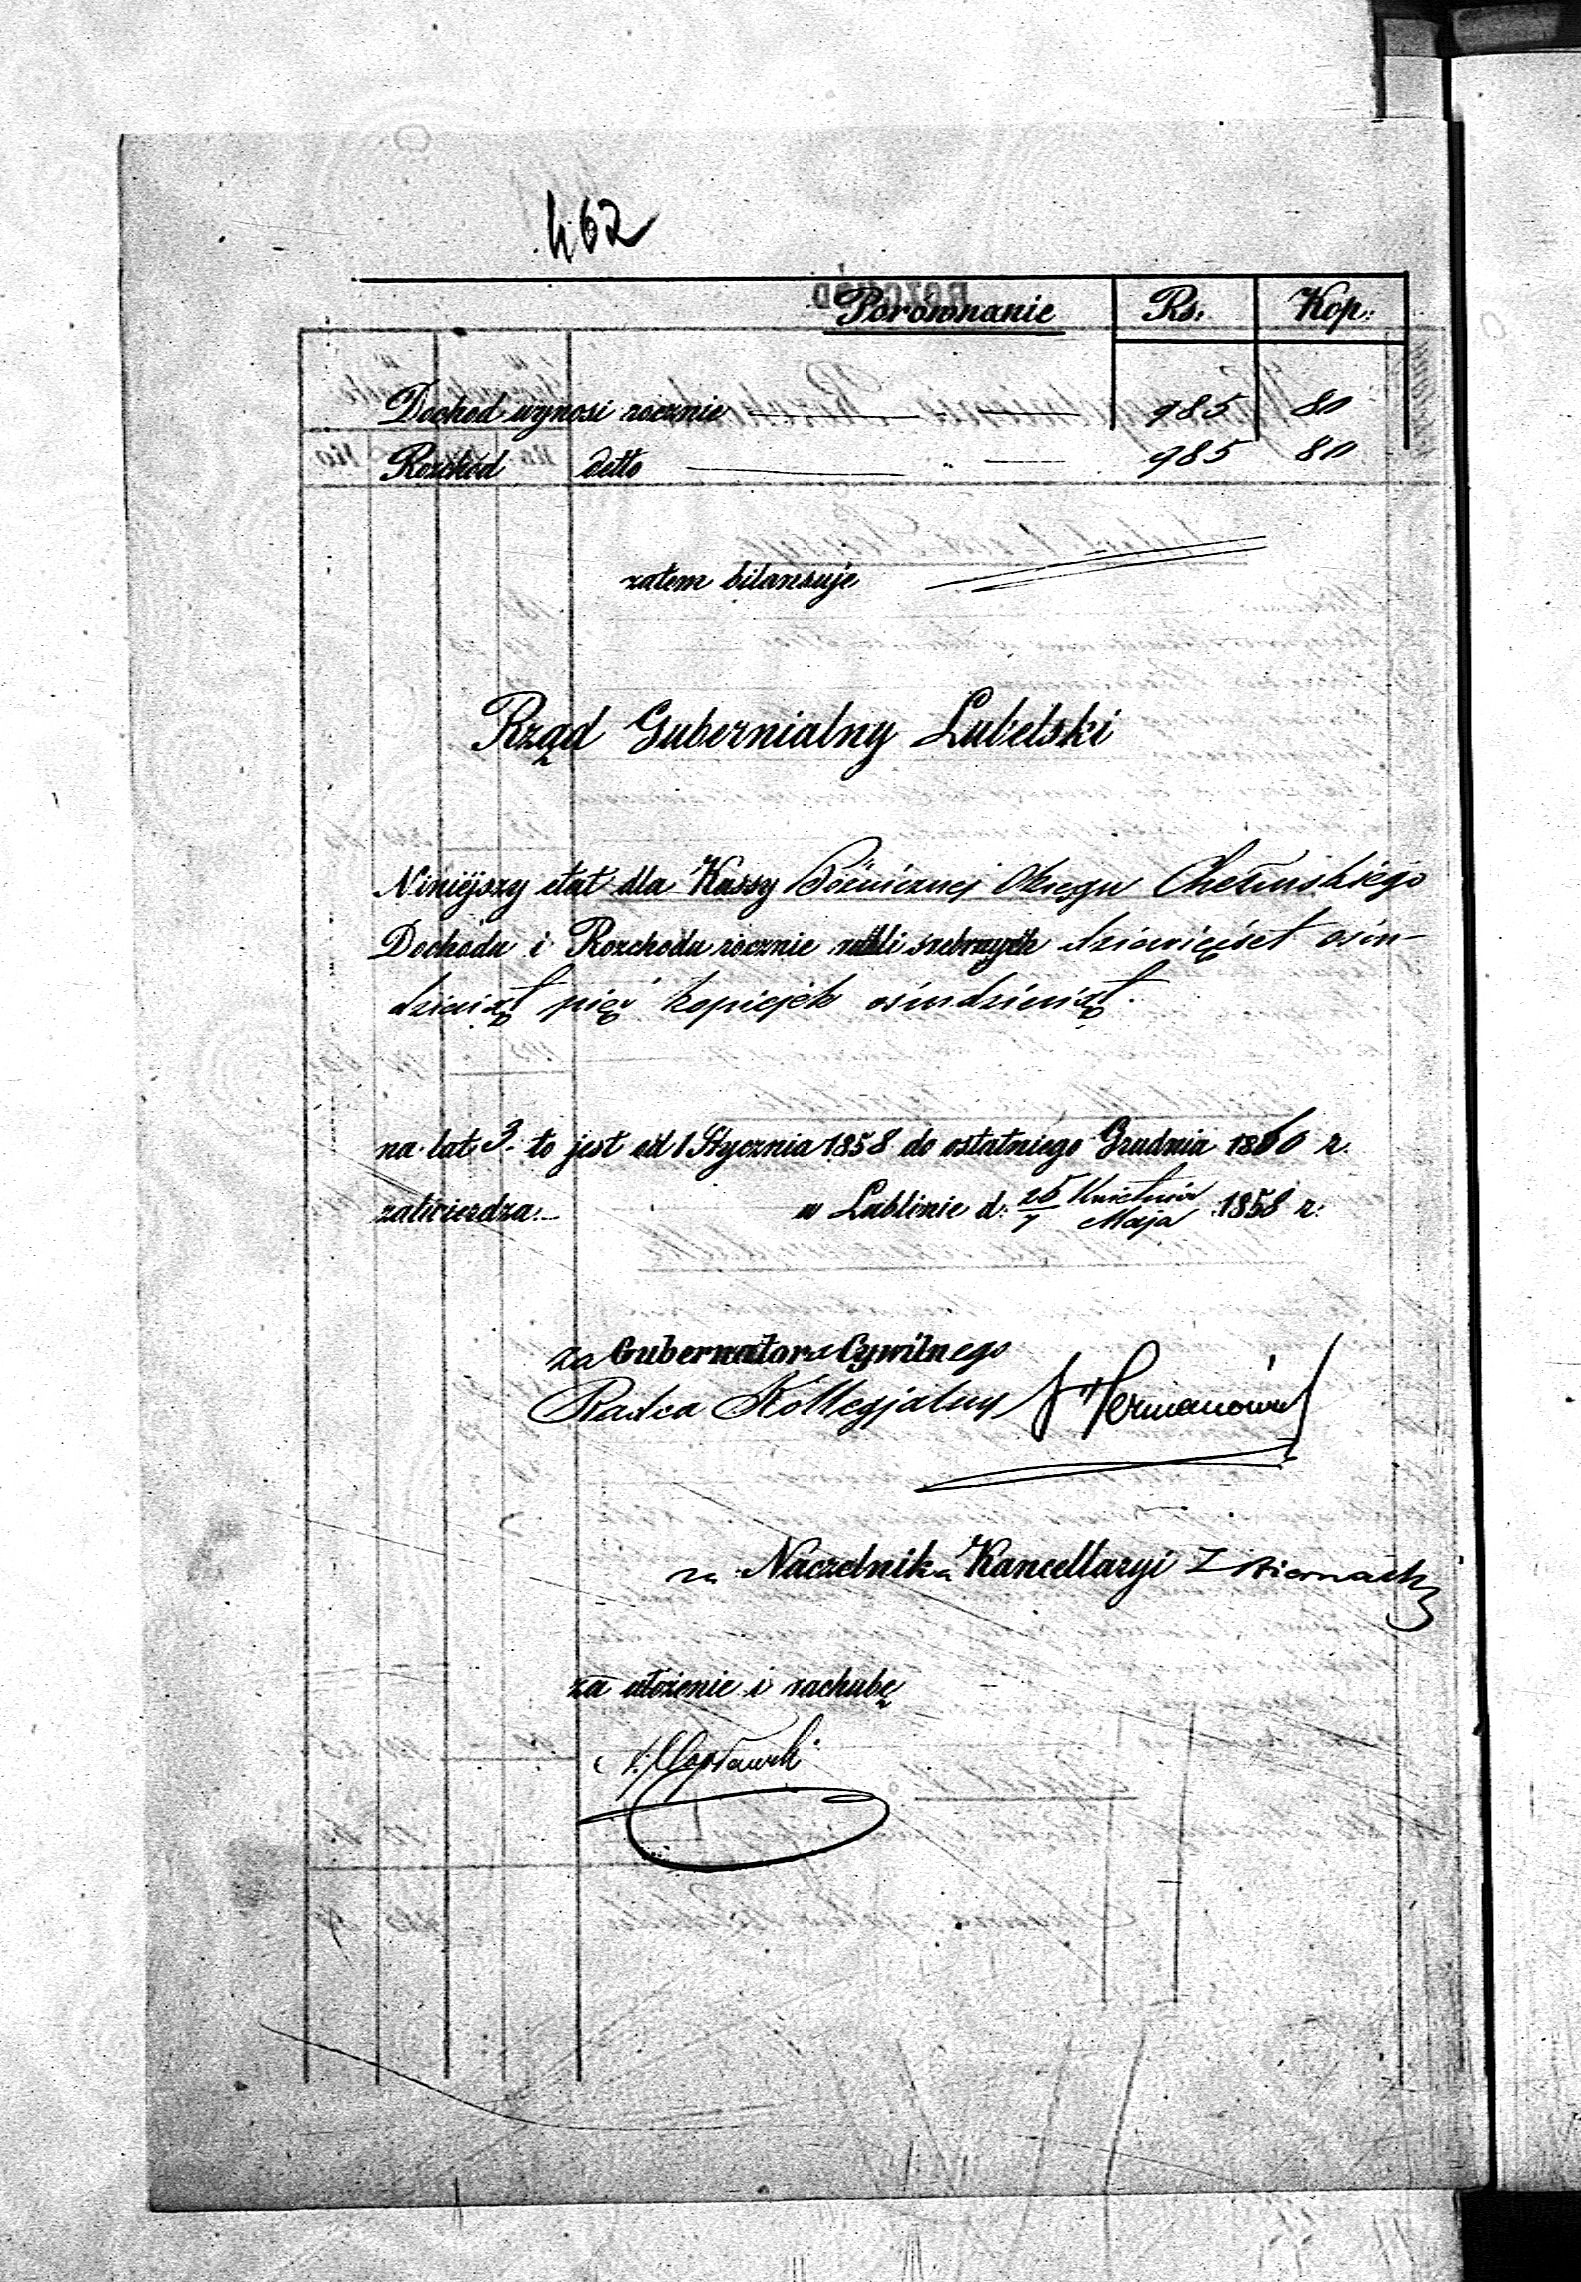 462
Porównanie Rs: Kop:
Dochod wynosi rocznie 985 80
Rozchód detto 985 80
zatem bilansuje
Rząd Gubernialny Lubelski
Niniejszy etat dla Kassy Bóżnicznej Okręgu Chełmskiego
Dochodu i Rozchodu rocznie rubli srebrnych dziewięćset ośm-
dziesiąt pięć kopiejek ośmdziesiąt.
na lat 3. to jest od 1 Stycznia 1858 do ostatniego Grudnia 1860 r.
zatwierdza.— w Lublinie d: 25/7 Kwietnia/Maja 1858 r:
za Gubernatora Cywilnego
Radca Kollegjalny
za Naczelnika Kancellaryi
za ułożenie i rachubę